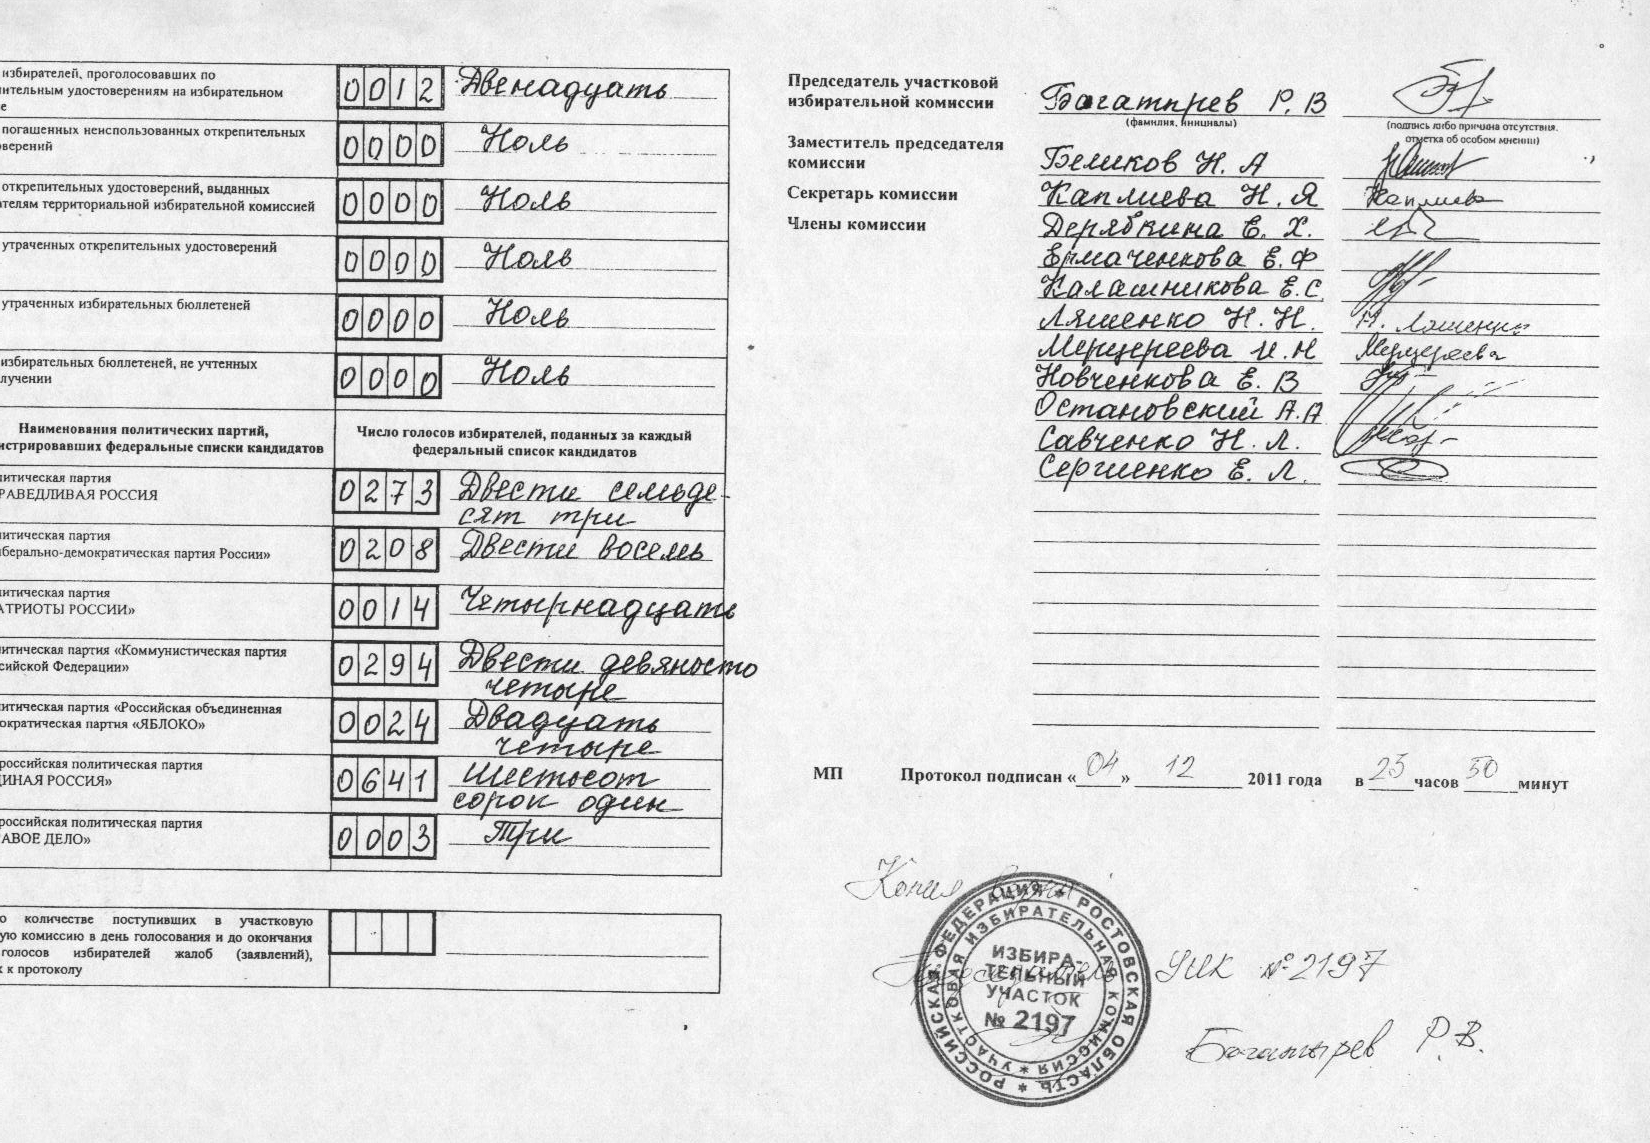 избирателей, проголосовавших по
ительным удостоверениям на избирательном
е
0012 Двенадцать
погашенных неиспользованных открепительных
верений
0000 Ноль
открепительных удостоверений, выданных
ателям территориальной избирательной комиссией
0000 Ноль
утраченных открепительных удостоверений
0000 Ноль
утраченных избирательных бюллетеней
0000 Ноль
избирательных бюллетеней, не учтенных
лучении
0000 Ноль
Наименования политических партий,
истрировавших федеральные списки кандидатов
Число голосов избирателей, поданных за каждый
федеральный список кандидатов
литическая партия
РАВЕДЛИВАЯ РОССИЯ
0273 Двести семьде-
сят три
литическая партия
берально-демократическая партия России»
0208 Двести восемь
литическая партия
АТРИОТЫ РОССИИ»
0014 Четырнадцать
литическая партия «Коммунистическая партия
сийской Федерации»
0294 Двести девяносто
четыре
литическая партия «Российская объединенная
ократическая партия «ЯБЛОКО»
0024 Двадцать
четыре
российская политическая партия
ДИНАЯ РОССИЯ»
0641 Шестьсот
сорок один
российская политическая партия
АВОЕ ДЕЛО»
0003 Три
о количестве поступивших в участковую
ую комиссию в день голосования и до окончания
голосов избирателей жалоб (заявлений),
х к протоколу
Председатель участковой
избирательной комиссии
Багатырев Р. В
(фамилия, инициалы)
(подпись либо причина отсутствия,
отметка об особом мнении)
Заместитель председателя
комиссии
Беликов Н. А
Секретарь комиссии Каплиева Н. Я Каплиева
Члены комиссии Дерябкина Е. Х.
Ермаченкова Е. Ф
Калашникова Е. С.
Ляшенко Н. Н. Н. Ляшенко
Мерцереева И. Н Мерцереева
Новченкова Е. В
Остановский А.А
Савченко Н. Л.
Сергиенко Е. Л.
МП Протокол подписан «04» 12 2011 года в 23 часов 50 минут
Копия верна
РОССИЙСКАЯ ФЕДЕРАЦИЯ * РОСТОВСКАЯ ОБЛАСТЬ *
УЧАСТКОВАЯ ИЗБИРАТЕЛЬНАЯ КОМИССИЯ *
ИЗБИРА-
ТЕЛЬНЫЙ
УЧАСТОК
№ 2197
Председатель УИК № 2197
Багатырев Р.В.